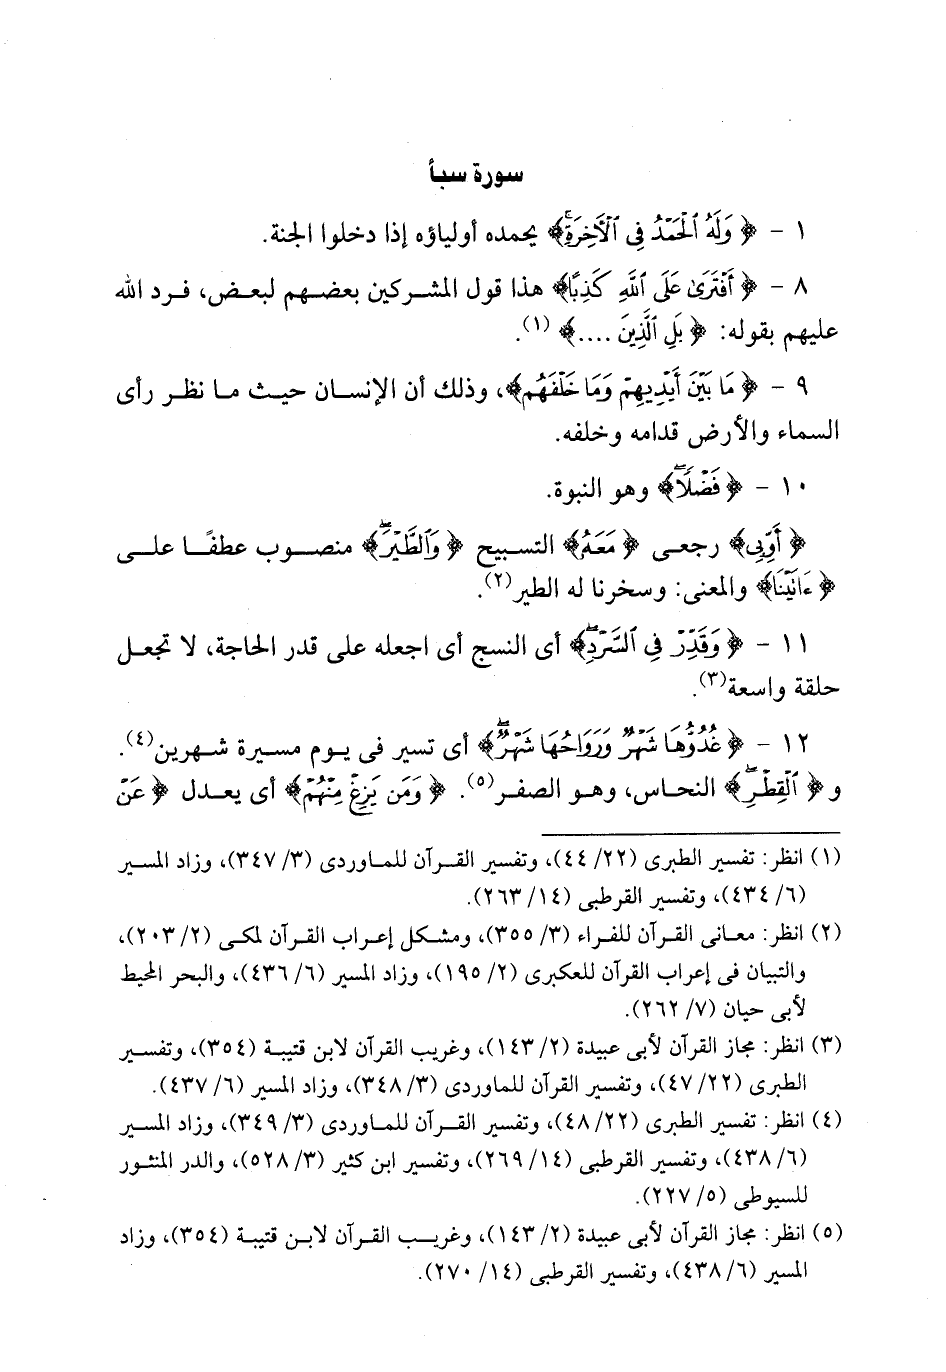 سورة سبأ
١ - ﴿وَلَهُ الْحَمْدُ فِي الْآخِرَةِ﴾ يحمده أولياؤه إذا دخلوا الجنة.
٨ - ﴿أَفْتَرَىٰ عَلَى اللَّهِ كَذِبًا﴾ هذا قول المشركين بعضهم لبعض، فرد الله
عليهم بقوله: ﴿بَلِ الَّذِينَ ....﴾ (١).
٩ - ﴿مَا بَيْنَ أَيْدِيهِمْ وَمَا خَلْفَهُم﴾، وذلك أن الإنسان حيث ما نظر رأى
السماء والأرض قدامه وخلفه.
١٠ - ﴿فَضْلًا﴾ وهو النبوة.
﴿أَوِّبِي﴾ رجعى ﴿مَعَهُ﴾ التسبيح ﴿وَالطَّيْرَ﴾ منصوب عطفًا على
﴿ءَاتَيْنَا﴾ والمعنى: وسخرنا له الطير(٢).
١١ - ﴿وَقَدِّرْ فِي السَّرْدِ﴾ أى النسج أى اجعله على قدر الحاجة، لا تجعل
حلقة واسعة(٣).
١٢ - ﴿غُدُوُّهَا شَهْرٌ وَرَوَاحُهَا شَهْرٌ﴾ أى تسير فى يوم مسيرة شهرين(٤).
و﴿الْقِطْرِ﴾ النحاس، وهو الصفر(٥). ﴿وَمَن يَزِغْ مِنْهُمْ﴾ أى يعدل ﴿عَنْ
(١) انظر: تفسير الطبرى (٢٢/ ٤٤)، وتفسير القرآن للماوردى (٣/ ٣٤٧)، وزاد المسير
(٦/ ٤٣٤)، وتفسير القرطبى (١٤/ ٢٦٣).
(٢) انظر: معانى القرآن للفراء (٣/ ٣٥٥)، ومشكل إعراب القرآن لمكى (٢/ ٢٠٣)،
والتبيان فى إعراب القرآن للعكبرى (٢/ ١٩٥)، وزاد المسير (٦/ ٤٣٦)، والبحر المحيط
لأبى حيان (٧/ ٢٦٢).
(٣) انظر: مجاز القرآن لأبى عبيدة (٢/ ١٤٣)، وغريب القرآن لابن قتيبة (٣٥٤)، وتفسير
الطبرى (٢٢/ ٤٧)، وتفسير القرآن للماوردى (٣/ ٣٤٨)، وزاد المسير (٦/ ٤٣٧).
(٤) انظر: تفسير الطبرى (٢٢/ ٤٨)، وتفسير القرآن للماوردى (٣/ ٣٤٩)، وزاد المسير
(٦/ ٤٣٨)، وتفسير القرطبى (١٤/ ٢٦٩)، وتفسير ابن كثير (٣/ ٥٢٨)، والدر المنثور
للسيوطى (٥/ ٢٢٧).
(٥) انظر: مجاز القرآن لأبى عبيدة (٢/ ١٤٣)، وغريب القرآن لابن قتيبة (٣٥٤)، وزاد
المسير (٦/ ٤٣٨)، وتفسير القرطبى (١٤/ ٢٧٠).